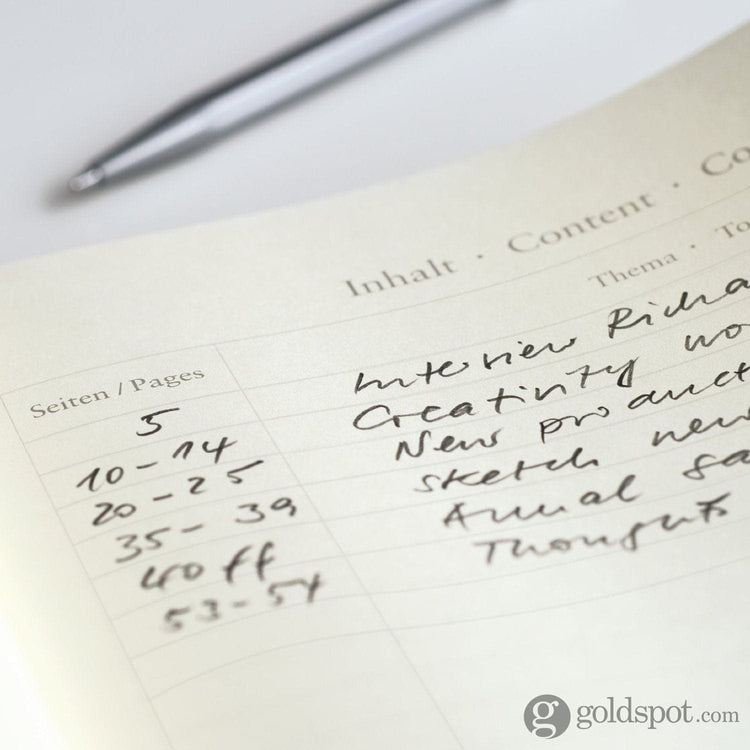 Inhalt · Content · Co
Thema · To
Seiten / Pages
5 Interview Richa
10 - 14 Creativity wo
20 - 25 New product
35 - 39 sketch new
40 ff Annual sa
53 - 54 Thoughts
goldspot.com